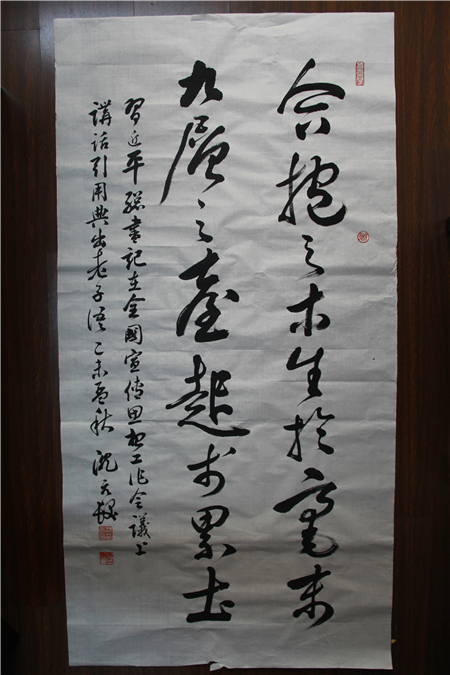 合抱之木生於毫末
九層之臺起於累土
習近平總書記在全國宣傳思想工作会議上
講話引用典出老子語乙未孟秋 沈天